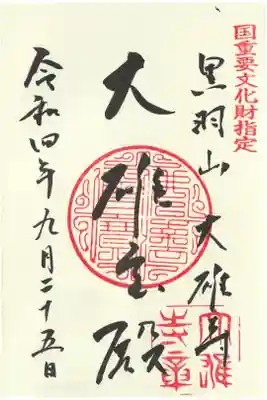 国重要文化財指定
黒羽山 大雄寺
大雄宝殿
令和四年九月二十五日